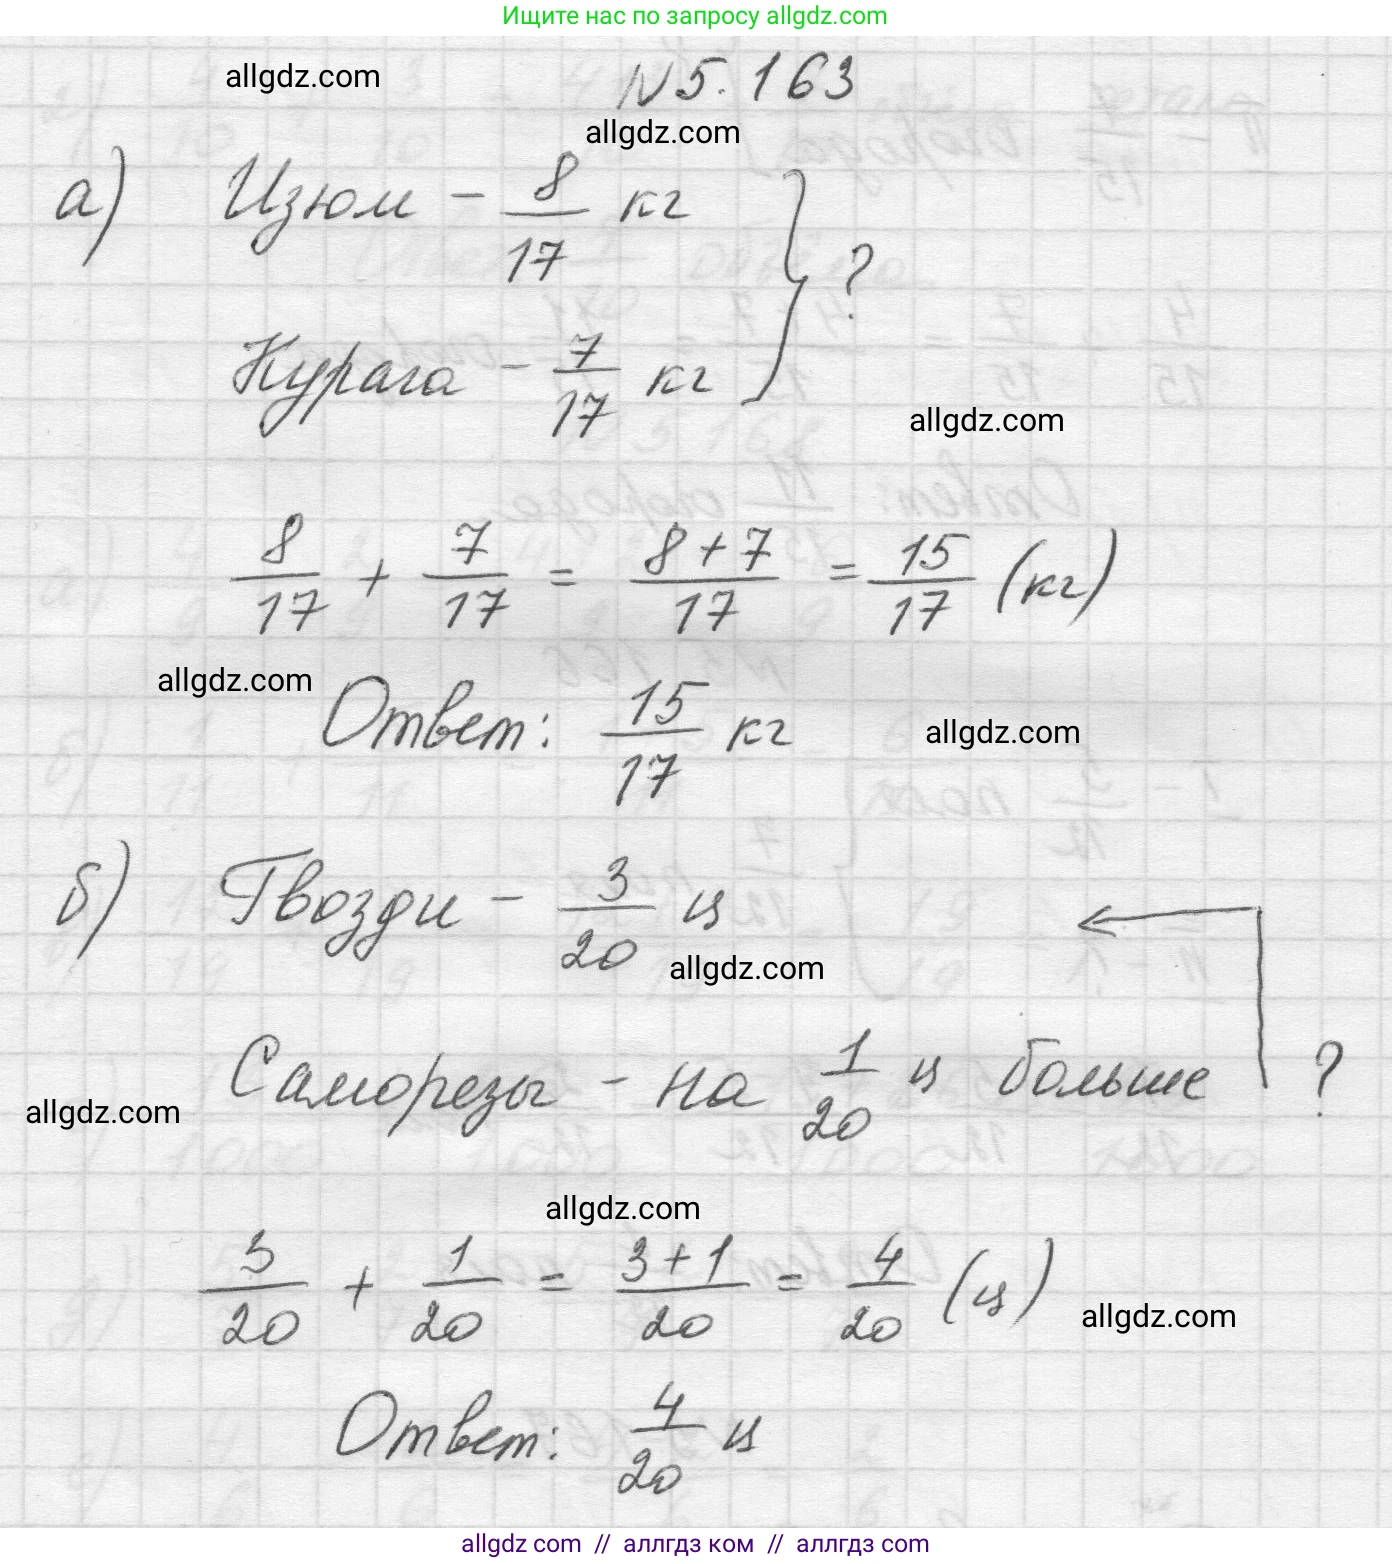 Ищите нас по запросу allgdz.com
allgdz.com
N 5.163
allgdz.com
а) Изюм - 8/17 кг
Курага - 7/17 кг } ?
allgdz.com
8/17 + 7/17 = (8+7)/17 = 15/17 (кг)
allgdz.com
Ответ: 15/17 кг
allgdz.com
б) Гвозди - 3/20 ц
allgdz.com
Саморезы - на 1/20 ц больше ?
allgdz.com
allgdz.com
3/20 + 1/20 = (3+1)/20 = 4/20 (ц)
allgdz.com
Ответ: 4/20 ц
allgdz.com // аллгдз ком // аллгдз com